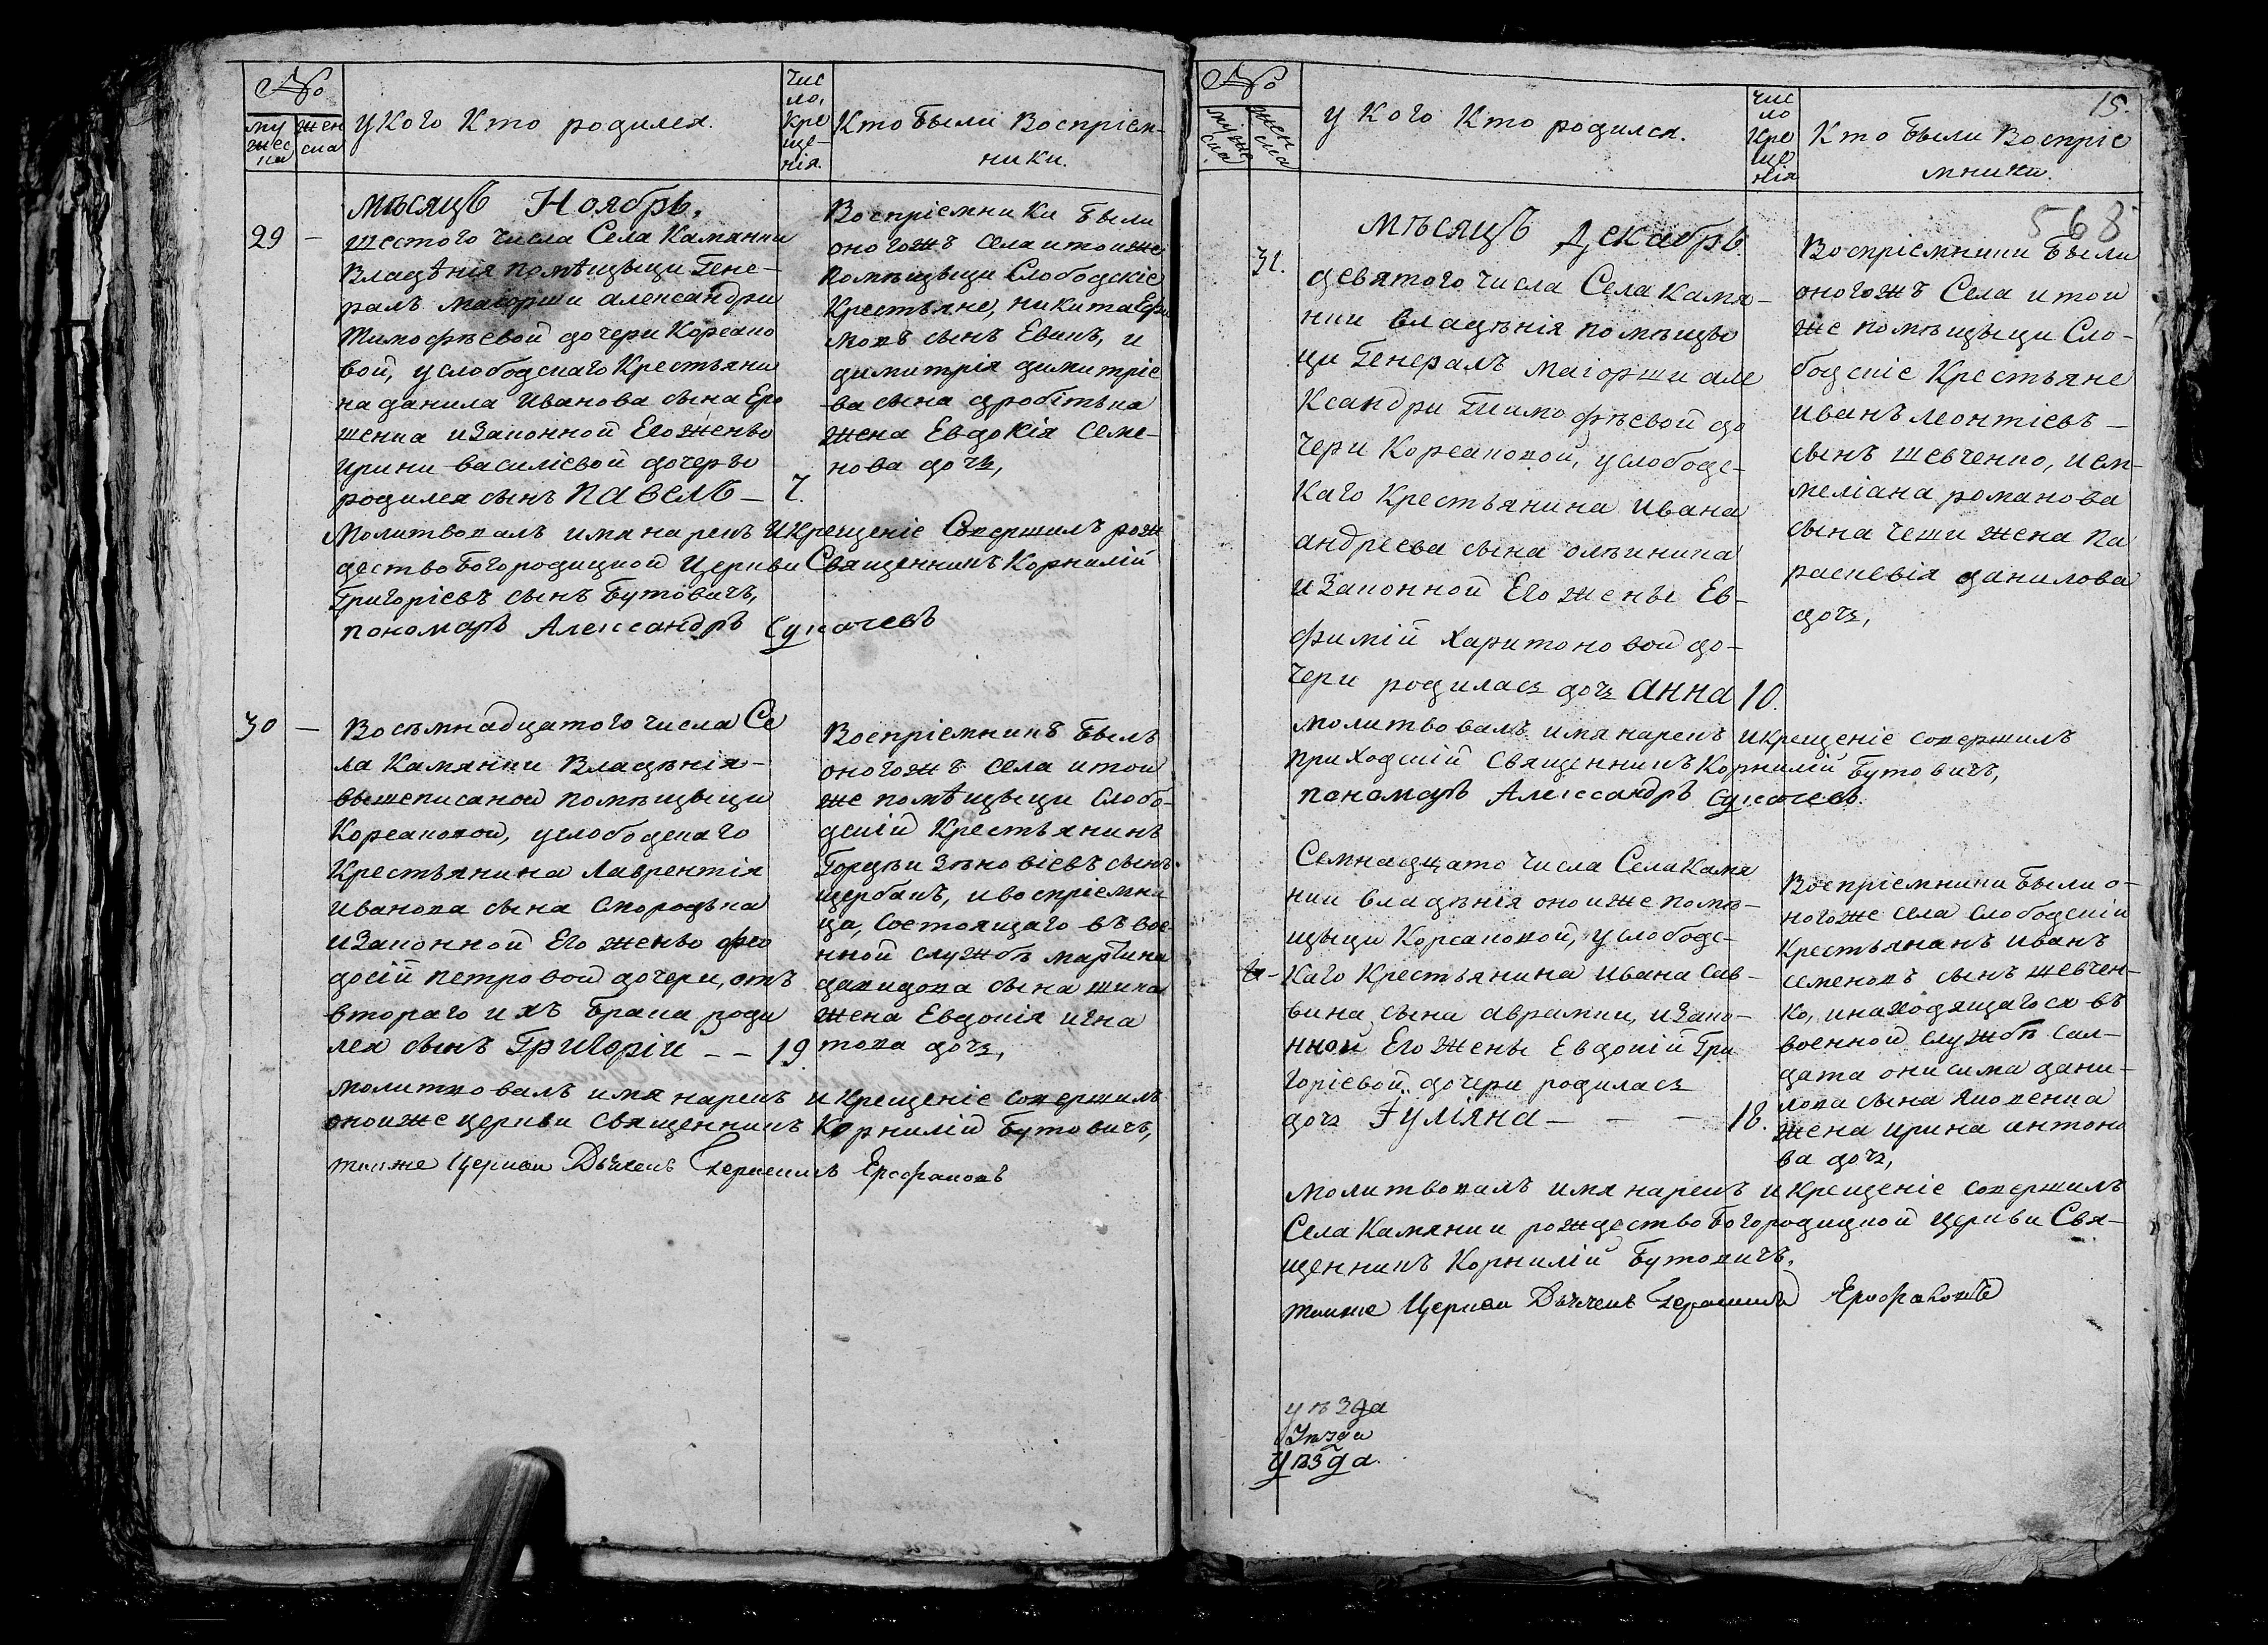 №
му
жес
ка
жен
ска
У кого кто родился.
Чис
ло,
кре
ще-
нія.
Кто были восприем-
ники.
мѣсяцъ Ноябрь.
29 -
шестого числа Села Камянки
Владѣнія помѣщыци Гене-
ралъ маіорши александри
Тимофѣевой дочери Корсако
вой, услободскаго Крестьяни
на данила Иванова сына Еро
шенка изаконной Его женѣ
ирини василіевой дочерѣ
родился сынъ Павелъ - 7.
Воспріемники были
оногожъ села итоиже
помѣщыци Слободскіе
Крестьяне, никита Ефи
мовъ сынъ Евакъ, и
димитрія димитріе
ва сына дробѣтька
жена Евдокія Семе-
нова дочь,
Молитвовалъ имя нарекъ икрещеніе Совершилъ рож
дествобогородицкой Церкви Священникъ Корнилій
Григоріевъ сынъ Бутовичъ,
пономарь Александръ Сукачевъ
30 -
Восѣмнадцатого числа Се
ла Камянки Владѣнія-
вышеписаной помѣщыци
Корсаковой, услободскаго
Крестьянина Лаврентія
Иванова сына Смородька
изаконной Его женѣ фео
досій петровой дочери, отъ
втораго ихъ брака роди
лся сынъ Григоріи - - 19.
Воспріемникъ былъ
оногожъ села итои
же помѣщыци слобо-
дскій Крестьянинъ
Гордѣи Зѣновіевъ сынъ
щербакъ, ивоспріемни
ца, Состоящаго въ вое-
нной службѣ мартина
давидова сына шика
жена Евдокія игна
това дочь,
молитвовалъ имя нарекъ икрещеніе совершилъ
оноиже церкви священникъ Корнилій Бутовичъ,
тоиже Церкви Дьячекъ Герасимъ Ерофаловъ
№
мужес
ска
жен
ска
У кого кто родился.
Чис
ло
кре
ще
нія
15.
Кто были воспріе
мники.
568
мѣсяцъ Декабрь.
31.
девятого числа Села Камя-
нки владѣнія помѣщы
ци Генералъ маіорши але
ксандри Тимофѣевой до
чери Корсаковой, услободс-
каго Крестьянина ивана
андреева сына олѣйника
изаконной Его женѣ Ев-
фимій Харитоновой до-
чери родилась дочь анна 10.
Воспріемники были
оногожъ Села итои
же помѣщыци Сло-
бодскіе Крестьяне
иванъ леонтіевъ -
сынъ шевченко, и ем-
меліана романова
сына чеши жена па
раскевія данилова
дочь,
молитвовалъ имя нарекъ икрещеніе совершилъ
приходскій священникъ Корнилій Бутовичъ,
пономарь Александръ Сукачевъ.
Семнадцато числа Села Камя
нки владѣнія оноиже помѣ-
щыци Корсаковой, услободс-
каго Крестьянина ивана Сав-
вина сына аврамки, изако-
нной Его жены Евдокій Гри
горіевой дочери родилась
дочь Іуліяна - - - 18.
Воспріемники были о-
ногоже села слободскій
Крестьянинъ иванъ
семеновъ сынъ шевчен-
ко, инаходящагося въ
военной службѣ сал-
дата онисима дани-
лова сына яковенка
жена ирина антоно
ва дочь,
молитвовалъ имя нарекъ икрещеніе совершилъ
Села Камянки рождествобогородицкой церкви Свя-
щенникъ Корнилій Бутовичъ.
тоиже Церкви Дьячекъ Герасимъ Ерофаловъ
уѣзда
Уѣзда
уѣзда.